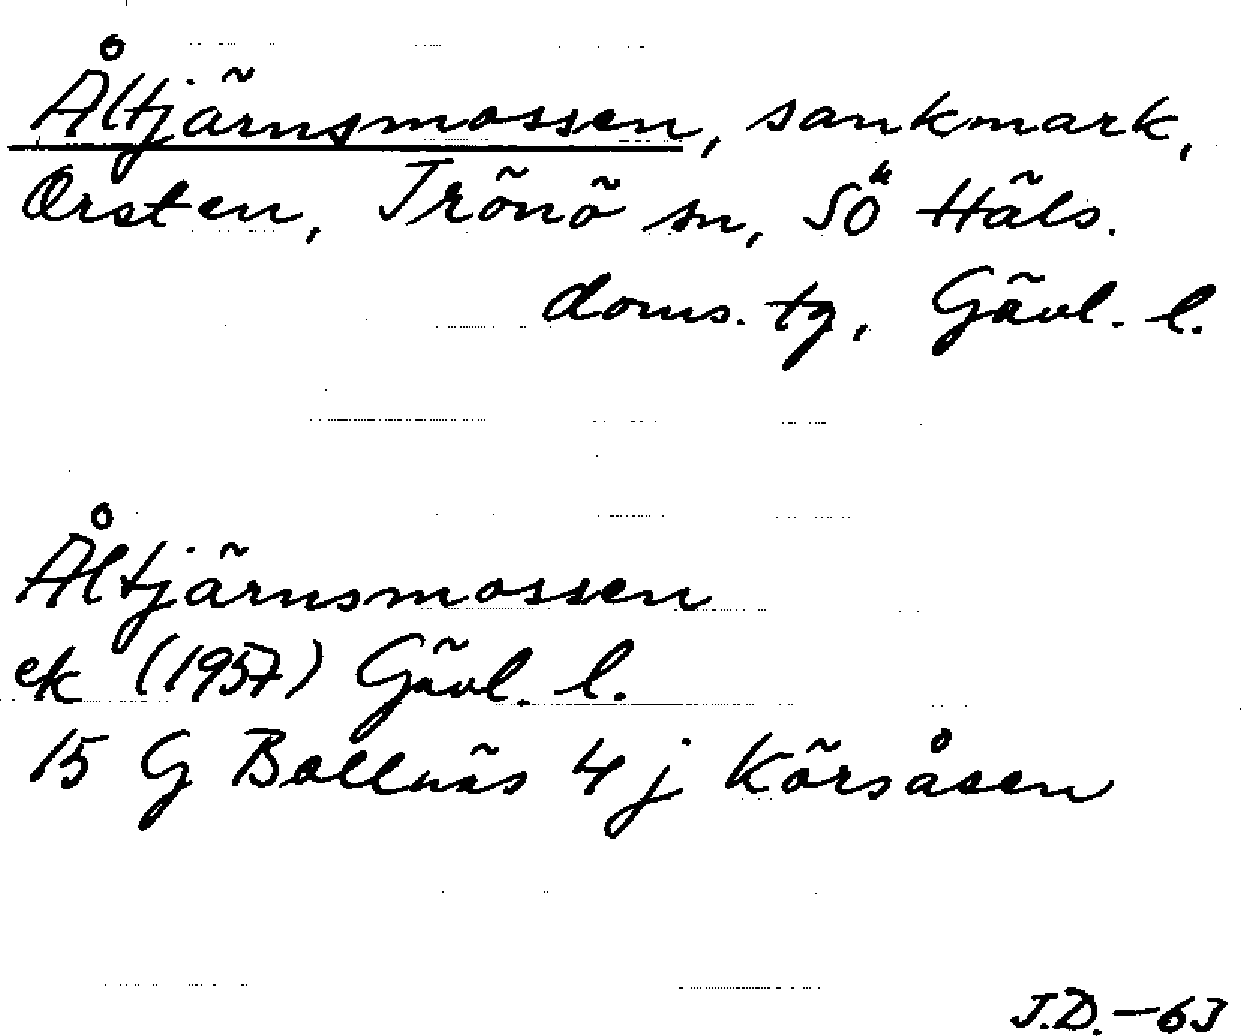 Åltjärnsmossen, sankmark,
Orsten, Trönö sn, SÖ Häls.
doms. tg, Gävl. l.
Åltjärnsmossen
ek (1957) Gävl. l.
15 G Bollnäs 4 j Körsåsen
J.D. – 63